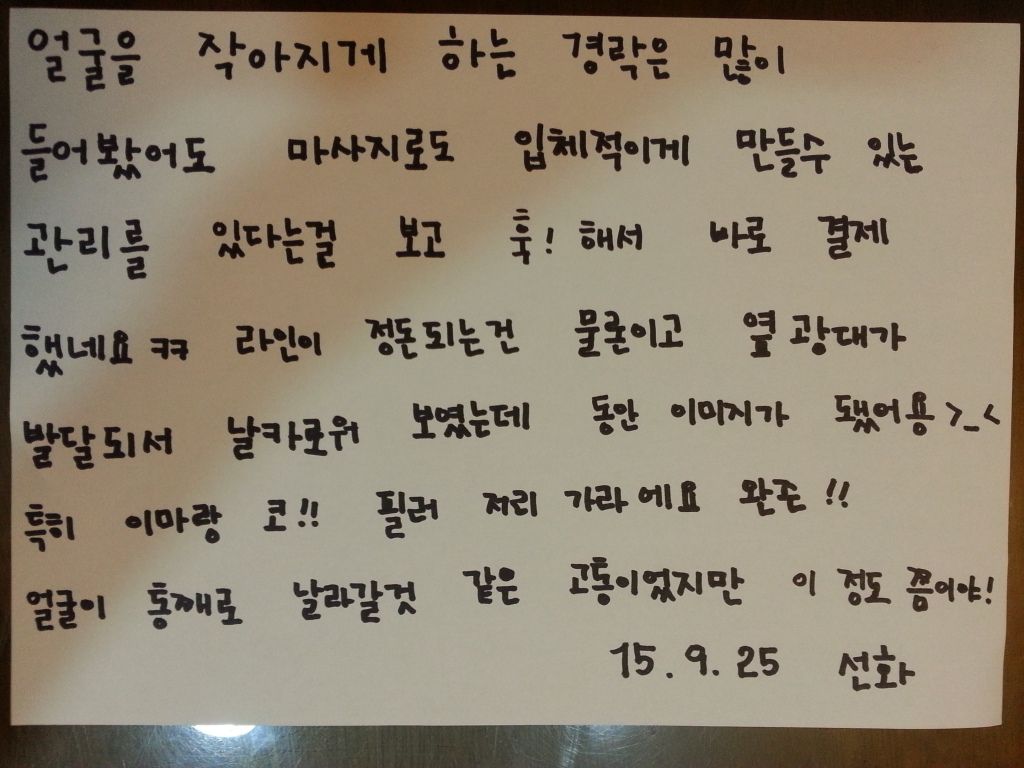 얼굴을 작아지게 하는 경락은 많이
들어봤어도 마사지로도 입체적이게 만들수 있는
관리를 있다는걸 보고 훅! 해서 바로 결제
했네요 ㅋㅋ 라인이 정돈되는건 물론이고 옆 광대가
발달되서 날카로워 보였는데 동안 이미지가 됐어용 >_<
특히 이마랑 코!! 필러 저리 가라에요 완존!!
얼굴이 통째로 날라갈것 같은 고통이었지만 이 정도 쯤이야!
15. 9. 25 선화